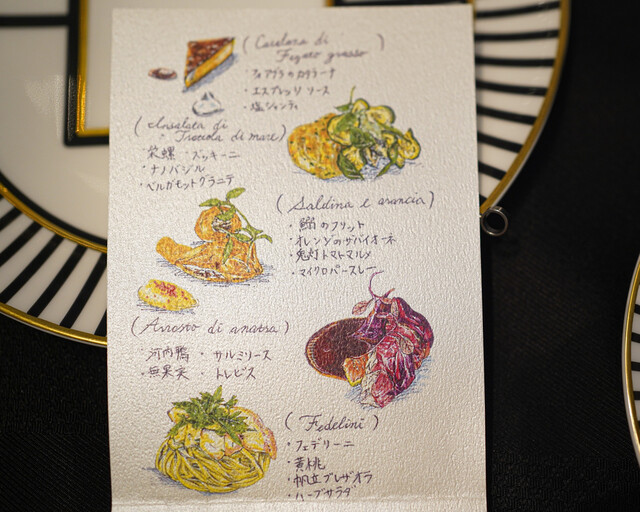 (Catalana di
Fegato grasso)
・フォアグラのカタラーナ
・エスプレッソ ソース
・塩シャンティ
(Insalata di
Trottola di mare)
・栄螺 ・ズッキーニ
・ナノバジル
・ベルガモットグラニテ
(Saldina e arancia)
・鰯のフリット
・オレンジのサバイオーネ
・兎灯トマトマルメ
・マイクロパースレー
(Arrosto di anatra)
・河内鴨 ・サルミソース
・無果実 ・トレビス
(Fedelini)
・フェデリーニ
・黄桃
・帆立ブレザオラ
・ハーブサラダ